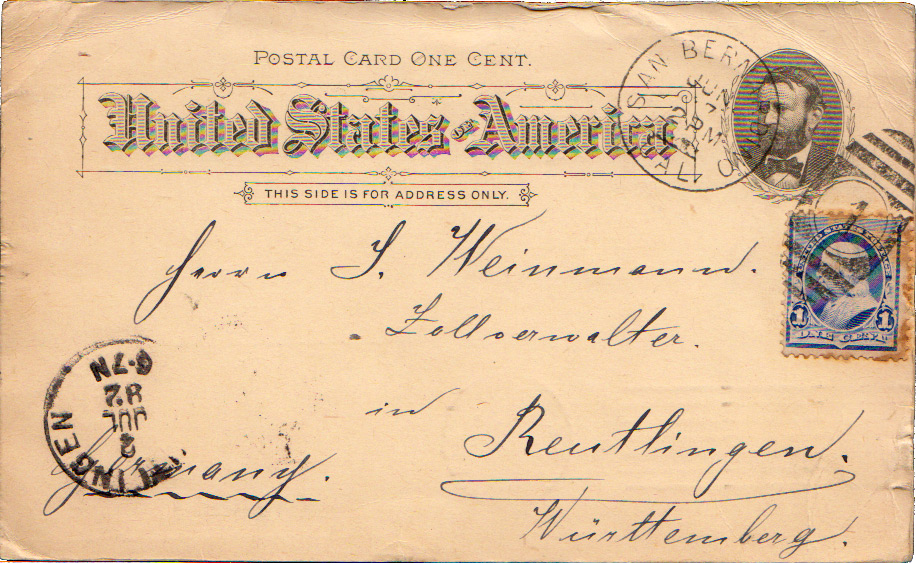 POSTAL CARD ONE CENT.
United States of America
THIS SIDE IS FOR ADDRESS ONLY.
SAN BERN
JUN
PM
1
ONE CENT
1 1
Herrn J. Weinmann.
Zollverwalter.
in Reutlingen.
Germany.
Württemberg.
LINGEN
2
JUL
6-7N